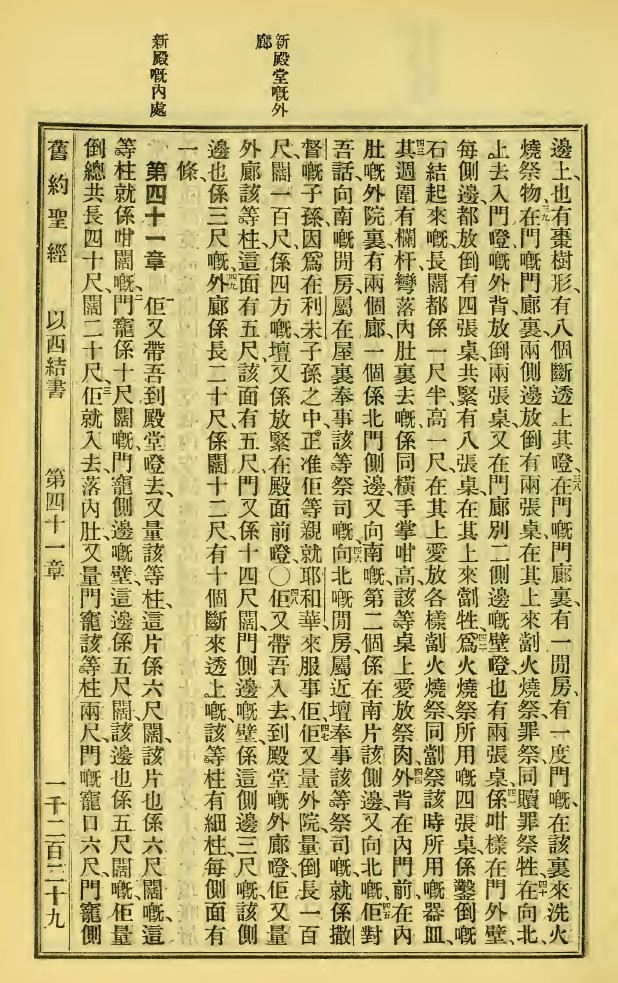 新殿堂嘅外
廊
新殿嘅內處
邊上也有棗樹形有八個斷透上其嶝三八在門嘅門廊裏有一間房有一度門嘅在該裏來洗火
燒祭物三九在門嘅門廊裏兩側邊放倒有兩張桌在其上來劏火燒祭罪祭同贖罪祭牲四十在向北
上去入門嶝嘅外背放倒兩張桌又在門廊別二側邊嘅壁嶝也有兩張桌四一係咁樣在門外壁
每側邊都放倒有四張桌共緊有八張桌在其上來劏牲四二爲火燒祭所用嘅四張桌係鑿倒嘅
石結起來嘅長闊都係一尺半高一尺在其上愛放各樣劏火燒祭同劏祭該時所用嘅器皿
四三其週圍有欄杆彎落內肚裏去嘅係同橫手掌咁高該等桌上愛放祭肉四四外背在內門前在內
肚嘅外院裏有兩個廊一個係北門側邊又向南嘅第二個係在南片該側邊又向北嘅四五佢對
吾話向南嘅閒房屬在屋裏奉事該等祭司嘅四六向北嘅閒房屬近壇奉事該等祭司嘅就係撒
督嘅子孫因爲在利未子孫之中正准佢等親就耶和華來服事佢四七佢又量外院量倒長一百
尺闊一百尺係四方嘅壇又係放緊在殿面前嶝〇四八佢又帶吾入去到殿堂嘅外廊嶝佢又量
外廊該等柱這面有五尺該面有五尺門又係十四尺闊門側邊嘅壁係這側邊三尺嘅該側
邊也係三尺嘅四九外廊係長二十尺係闊十二尺有十個斷來透上嘅該等柱有細柱每側面有
一條
第四十一章 一佢又帶吾到殿堂嶝去又量該等柱這片係六尺闊該片也係六尺闊嘅這
等柱就係咁闊嘅二門竉係十尺闊嘅門竉側邊嘅壁這邊係五尺闊該邊也係五尺闊嘅佢量
倒總共長四十尺闊二十尺三佢就入去落內肚又量門竉該等柱兩尺門嘅竉口六尺門竉側
舊約聖經 以西結書 第四十一章 一千二百三十九